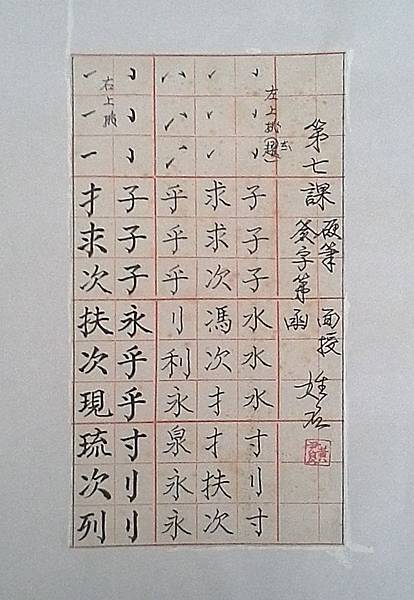 第七課
硬筆 面授
簽字筆 函
姓名
左上挑
子子子水水水寸刂寸
求求次馮次扌扌扶次
乎乎乎刂利永泉永永
右上挑
子子子永乎乎寸刂刂
扌求次扶次現琉次列